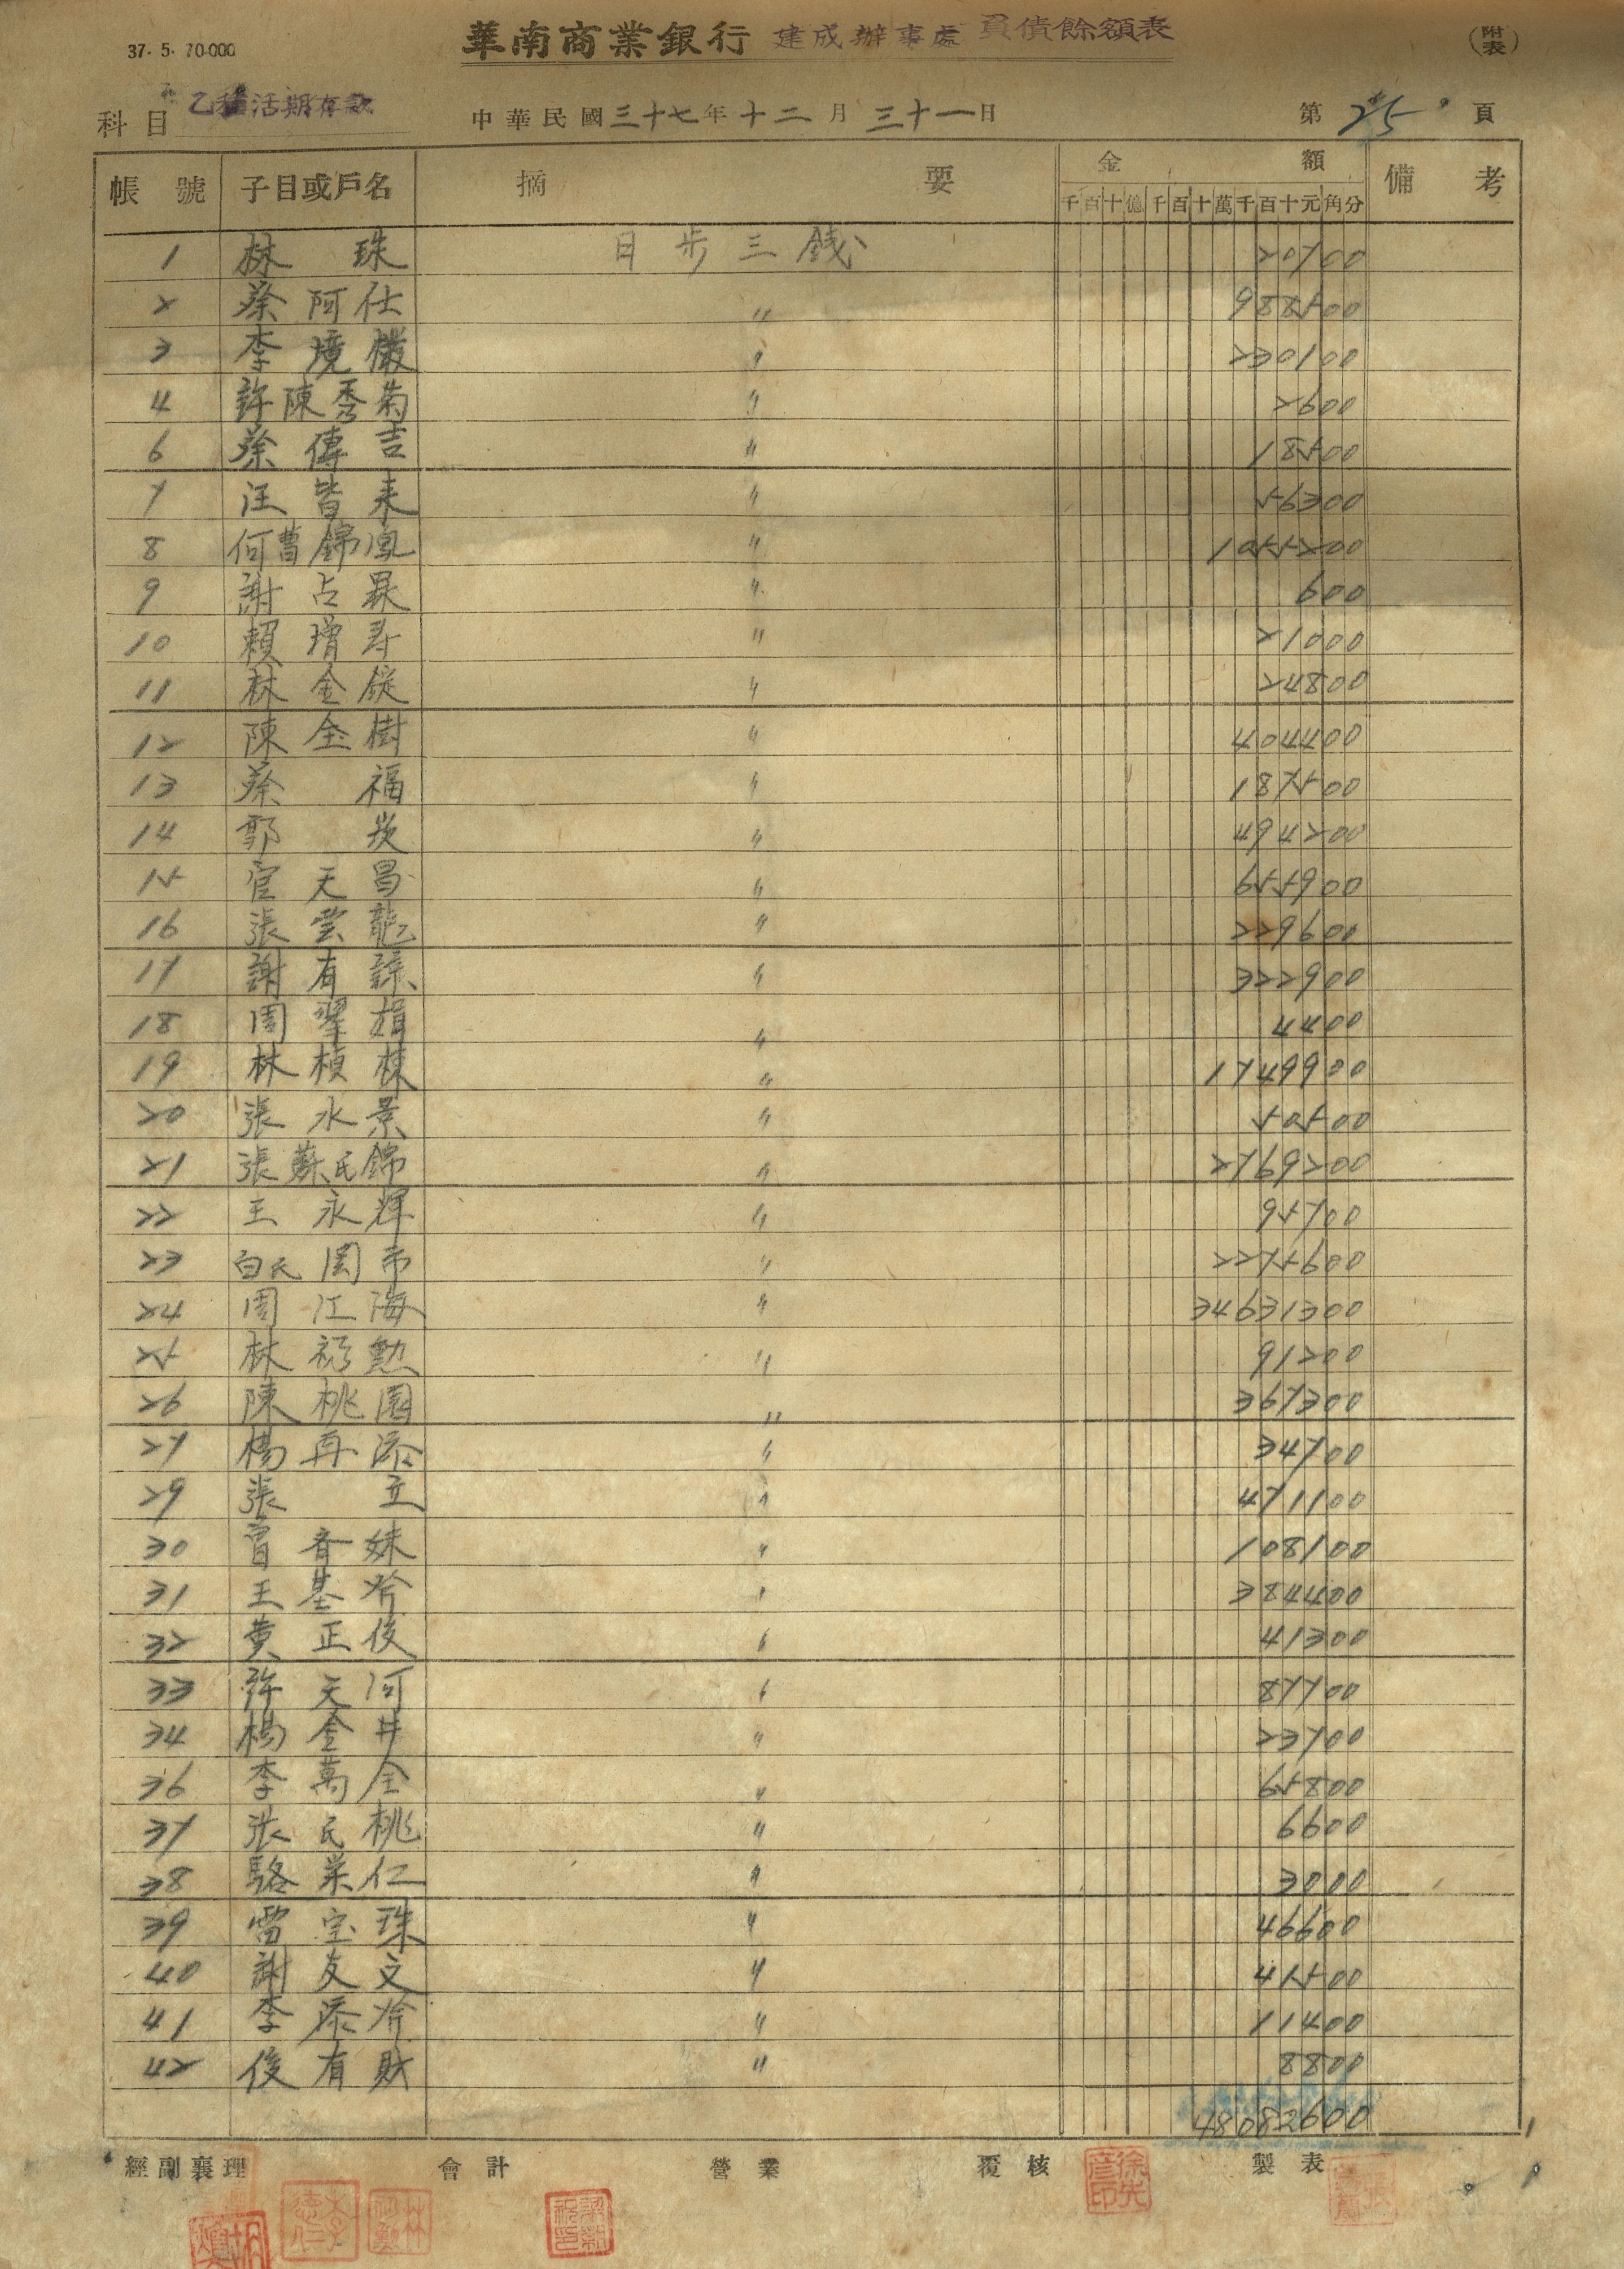 37. 5. 70.000
華南商業銀行 建成辦事處 負債餘額表 (附表)
科目 乙種活期存款 中華民國三十七年十二月三十一日 第25頁
帳號 子目或戶名 摘要 金額 備考
千百十億千百十萬千百十元角分
1 林珠 日步三錢 20700
2 蔡阿仕 〃 988500
3 李境 〃 230100
4 許陳秀菊 〃 2600
6 蔡傳吉 〃 18500
7 汪皆來 〃 56300
8 何曹錦鳳 〃 1055200
9 謝占 〃 600
10 賴增寿 〃 21000
11 林金錠 〃 24800
12 陳金樹 〃 404400
13 蔡福 〃 187500
14 郭炭 〃 494200
15 官天昌 〃 655900
16 張雲龍 〃 229600
17 謝有諒 〃 322900
18 周翠娟 〃 4400
19 林楨棟 〃 1749900
20 張水景 〃 50500
21 張蘇氏錦 〃 2769200
22 王永輝 〃 95700
23 白氏罔市 〃 2275600
24 周江海 〃 34631300
25 林勲 〃 91200
26 陳桃園 〃 367300
27 楊再添 〃 34700
29 張立 〃 471100
30 曾春妹 〃 108100
31 王基 〃 384400
32 黃正俊 〃 41300
33 許天河 〃 87700
34 楊金井 〃 23700
36 李萬全 〃 65800
37 張氏桃 〃 6600
38 駱業仁 〃 3000
39 雷宝珠 〃 46600
40 謝友文 〃 41500
41 李添 〃 11400
42 俊有財 〃 8800
48082600
經副襄理 會計 營業 覆核 製表